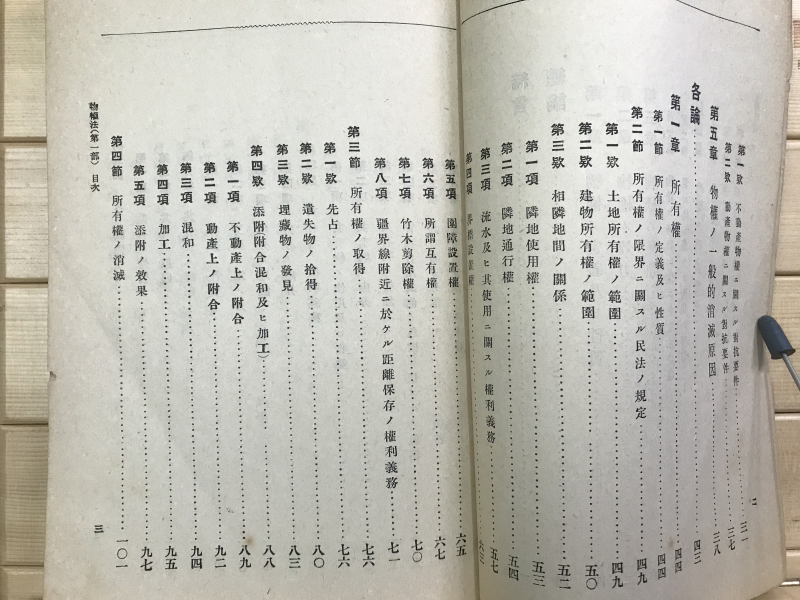 第一欵 不動產物權ニ關スル對抗要件……三一
第二欵 動產物權ニ關スル對抗要件……三七
第五章 物權ノ一般的消滅原因……三八
各論……四三
第一章 所有權……四四
第一節 所有權ノ定義及ヒ性質……四四
第二節 所有權ノ限界ニ關スル民法ノ規定……四九
第一欵 土地所有權ノ範圍……四九
第二欵 建物所有權ノ範圍……五〇
第三欵 相隣地間ノ關係……五二
第一項 隣地使用權……五三
第二項 隣地通行權……五四
第三項 流水及ヒ其使用ニ關スル權利義務……五七
第四項 界標設置權……六三
二
第五項 圍障設置權……六五
第六項 所謂互有權……六七
第七項 竹木剪除權……七〇
第八項 疆界線附近ニ於ケル距離保存ノ權利義務……七一
第三節 所有權ノ取得……七六
第一欵 先占……七六
第二欵 遺失物ノ拾得……八〇
第三欵 埋藏物ノ發見……八三
第四欵 添附附合混和及ヒ加工)……八八
第一項 不動產上ノ附合……八九
第二項 動產上ノ附合……九二
第三項 混和……九四
第四項 加工……九五
第五項 添附ノ效果……九七
第四節 所有權ノ消滅……一〇一
物權法(第一部) 目次
三